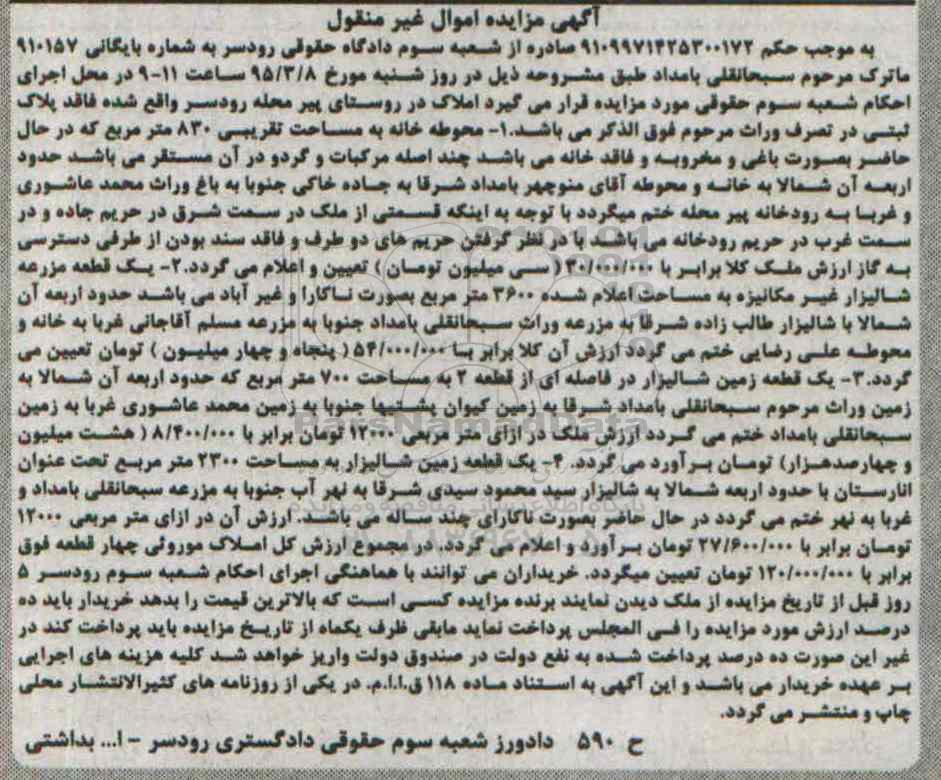 آگهی مزایده اموال غیر منقول
به موجب حکم ۹۱۰۹۹۷۱۴۲۵۳۰۰۱۷۲ صادره از شعبه سوم دادگاه حقوقی رودسر به شماره بایگانی ۹۱۰۱۵۷
ماترک مرحوم سبحانقلی بامداد طبق مشروحه ذیل در روز شنبه مورخ ۹۵/۳/۸ ساعت ۱۱-۹ در محل اجرای
احکام شعبه سوم حقوقی مورد مزایده قرار می گیرد املاک در روستای پیر محله رودسر واقع شده فاقد پلاک
ثبتی در تصرف وراث مرحوم فوق الذکر می باشد.۱- محوطه خانه به مساحت تقریبی ۸۳۰ متر مربع که در حال
حاضر بصورت باغی و مخروبه و فاقد خانه می باشد چند اصله مرکبات و گردو در آن مستقر می باشد حدود
اربعه آن شمالا به خانه و محوطه آقای منوچهر بامداد شرقا به جاده خاکی جنوبا به باغ وراث محمد عاشوری
و غربا به رودخانه پیر محله ختم میگردد با توجه به اینکه قسمتی از ملک در سمت شرق در حریم جاده و در
سمت غرب در حریم رودخانه می باشد با در نظر گرفتن حریم های دو طرف و فاقد سند بودن از طرفی دسترسی
به گاز ارزش ملک کلا برابر با ۳۰/۰۰۰/۰۰۰ ( سی میلیون تومان ) تعیین و اعلام می گردد.۲- یک قطعه مزرعه
شالیزار غیر مکانیزه به مساحت اعلام شده ۳۶۰۰ متر مربع بصورت ناکارا و غیر آباد می باشد حدود اربعه آن
شمالا با شالیزار طالب زاده شرقا به مزرعه وراث سبحانقلی بامداد جنوبا به مزرعه مسلم آقاجانی غربا به خانه و
محوطه علی رضایی ختم می گردد ارزش آن کلا برابر با ۵۴/۰۰۰/۰۰۰ ( پنجاه و چهار میلیون ) تومان تعیین می
گردد.۳- یک قطعه زمین شالیزار در فاصله ای از قطعه ۲ به مساحت ۷۰۰ متر مربع که حدود اربعه آن شمالا به
زمین وراث مرحوم سبحانقلی بامداد شرقا به زمین کیوان پشتیها جنوبا به زمین محمد عاشوری غربا به زمین
سبحانقلی بامداد ختم می گردد ارزش ملک در ازای متر مربعی ۱۲۰۰۰ تومان برابر با ۸/۴۰۰/۰۰۰ ( هشت میلیون
و چهارصدهزار) تومان برآورد می گردد. ۴- یک قطعه زمین شالیزار به مساحت ۲۳۰۰ متر مربع تحت عنوان
انارستان با حدود اربعه شمالا به شالیزار سید محمود سیدی شرقا به نهر آب جنوبا به مزرعه سبحانقلی بامداد و
غربا به نهر ختم می گردد در حال حاضر بصورت ناکارای چند ساله می باشد. ارزش آن در ازای متر مربعی ۱۲۰۰۰
تومان برابر با ۲۷/۶۰۰/۰۰۰ تومان برآورد و اعلام می گردد. در مجموع ارزش کل املاک موروثی چهار قطعه فوق
برابر با ۱۲۰/۰۰۰/۰۰۰ تومان تعیین میگردد. خریداران می توانند با هماهنگی اجرای احکام شعبه سوم رودسر ۵
روز قبل از تاریخ مزایده از ملک دیدن نمایند برنده مزایده کسی است که بالاترین قیمت را بدهد خریدار باید ده
درصد ارزش مورد مزایده را فی المجلس پرداخت نماید مابقی ظرف یکماه از تاریخ مزایده باید پرداخت کند در
غیر این صورت ده درصد پرداخت شده به نفع دولت در صندوق دولت واریز خواهد شد کلیه هزینه های اجرایی
بر عهده خریدار می باشد و این آگهی به استناد ماده ۱۱۸ ق.ا.ا.م. در یکی از روزنامه های کثیرالانتشار محلی
چاپ و منتشر می گردد.
ح ۵۹۰ دادورز شعبه سوم حقوقی دادگستری رودسر - ا... بداشتی
ParsNamadData